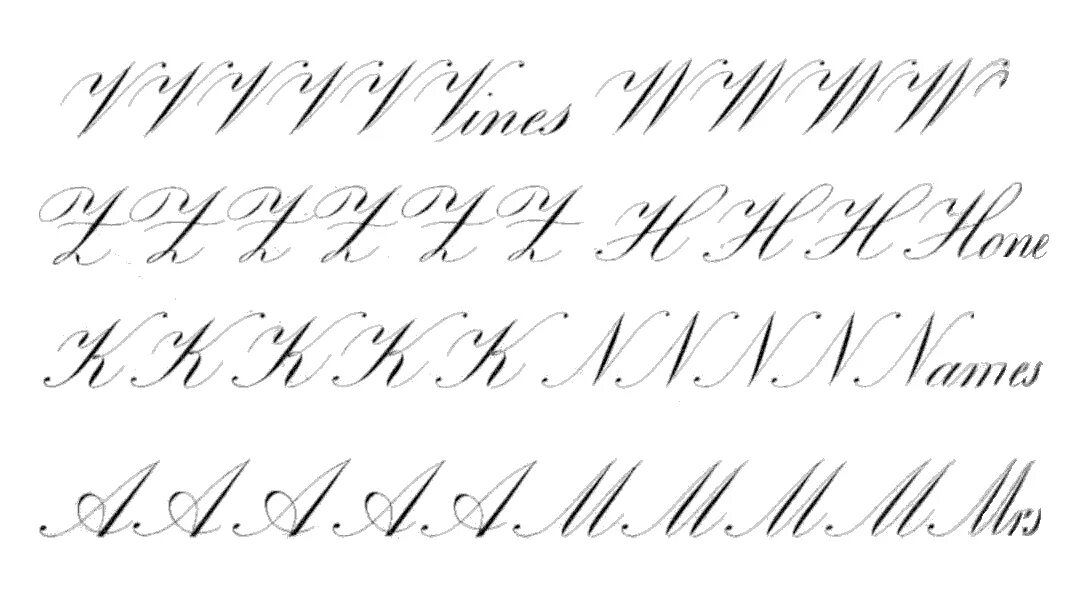 V V V V V Vines W W W W
Z Z Z Z Z Z H H H Hone
K K K K K N N N N Names
A A A A A M M M M Mrs